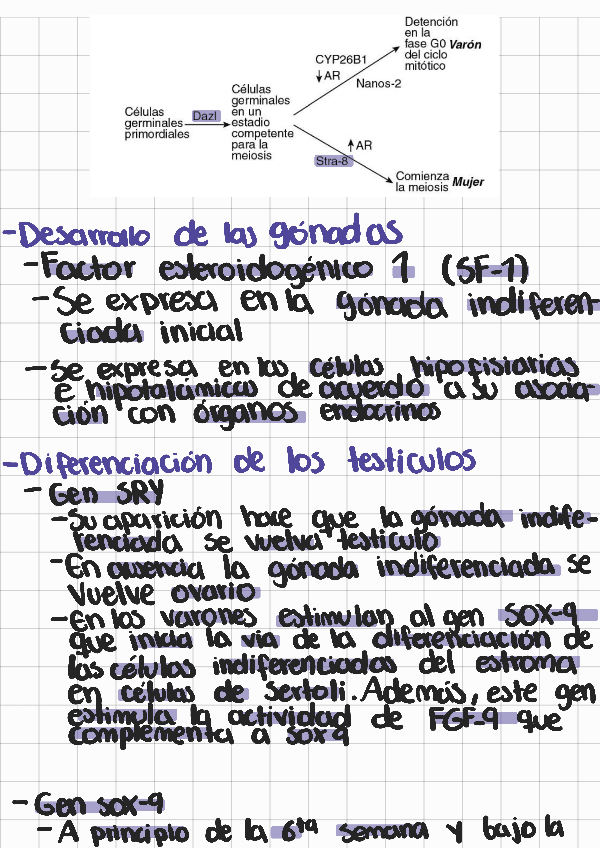 Células
germinales
primordiales
Dazl
Células
germinales
en un
estadio
competente
para la
meiosis
CYP26B1
↓ AR
Nanos-2
Detención
en la
fase G0 Varón
del ciclo
mitótico
↑ AR
Stra-8
Comienza
la meiosis Mujer
- Desarrollo de las gónadas
- Factor esteroidogénico 1 (SF-1)
- Se expresa en la gónada indiferen-
ciada inicial
- Se expresa en las células hipofisiarias
e hipotalámicas de acuerdo a su asocia-
ción con órganos endocrinos
- Diferenciación de los testículos
- Gen SRY
- Su aparición hace que la gónada indife-
renciada se vuelva testículo
- En ausencia la gónada indiferenciada se
vuelve ovario
- En los varones estimulan al gen SOX-9
que inicia la vía de la diferenciación de
las células indiferenciadas del estroma
en células de Sertoli. Además, este gen
estimula la actividad de FGF-9 que
complementa a sox-9
- Gen sox-9
- A principio de la 6ta semana y bajo la